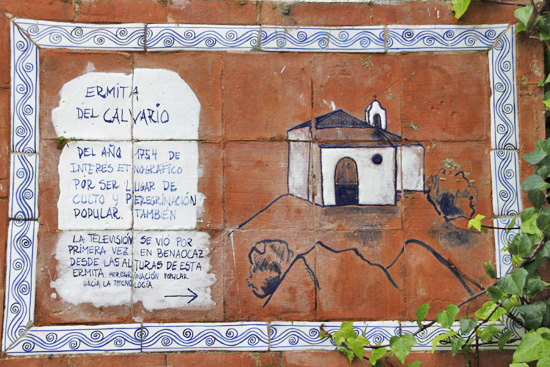 ERMITA
DEL CALVARIO
DEL AÑO 1754 DE
INTERÉS ETNOGRÁFICO
POR SER LUGAR DE
CULTO Y PEREGRINACIÓN
POPULAR. TAMBIÉN
LA TELEVISIÓN SE VIÓ POR
PRIMERA VEZ EN BENAOCAZ
DESDE LAS ALTURAS DE ESTA
ERMITA PEREGRINACIÓN POPULAR
HACIA LA TECNOLOGÍA